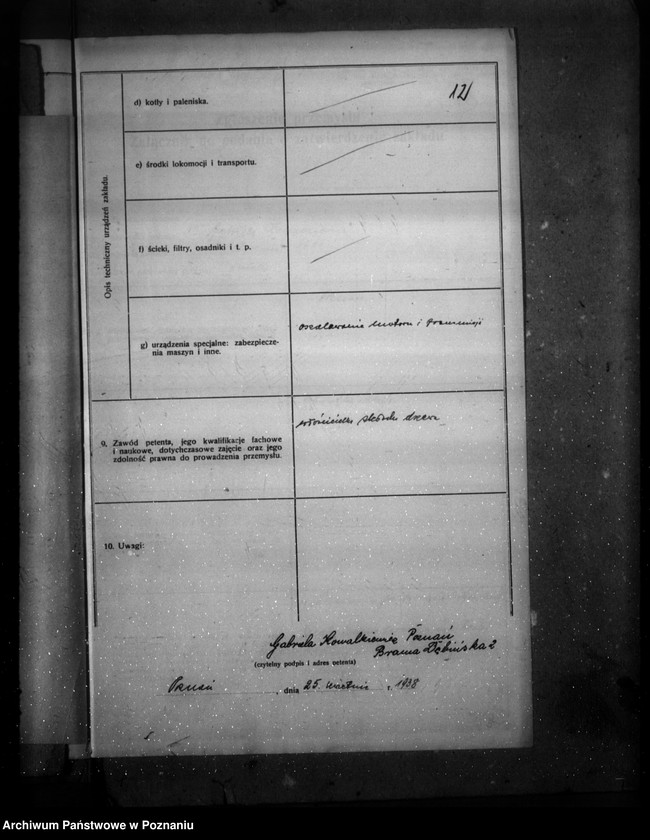 12
d) kotły i paleniska.
e) środki lokomocji i transportu.
Opis techniczny urządzeń zakładu.
f) ścieki, filtry, osadniki i t. p.
g) urządzenia specjalne: zabezpiecze-
nia maszyn i inne.
motoru i transmisji
9. Zawód petenta, jego kwalifikacje fachowe
i naukowe, dotychczasowe zajęcie oraz jego
zdolność prawna do prowadzenia przemysłu.
właścicielka składu drzewa
10. Uwagi:
Gabriela Kowalkiewicz Poznań
Brama Dębińska 2
(czytelny podpis i adres petenta)
Poznań, dnia 25. września r. 1938
Archiwum Państwowe w Poznaniu